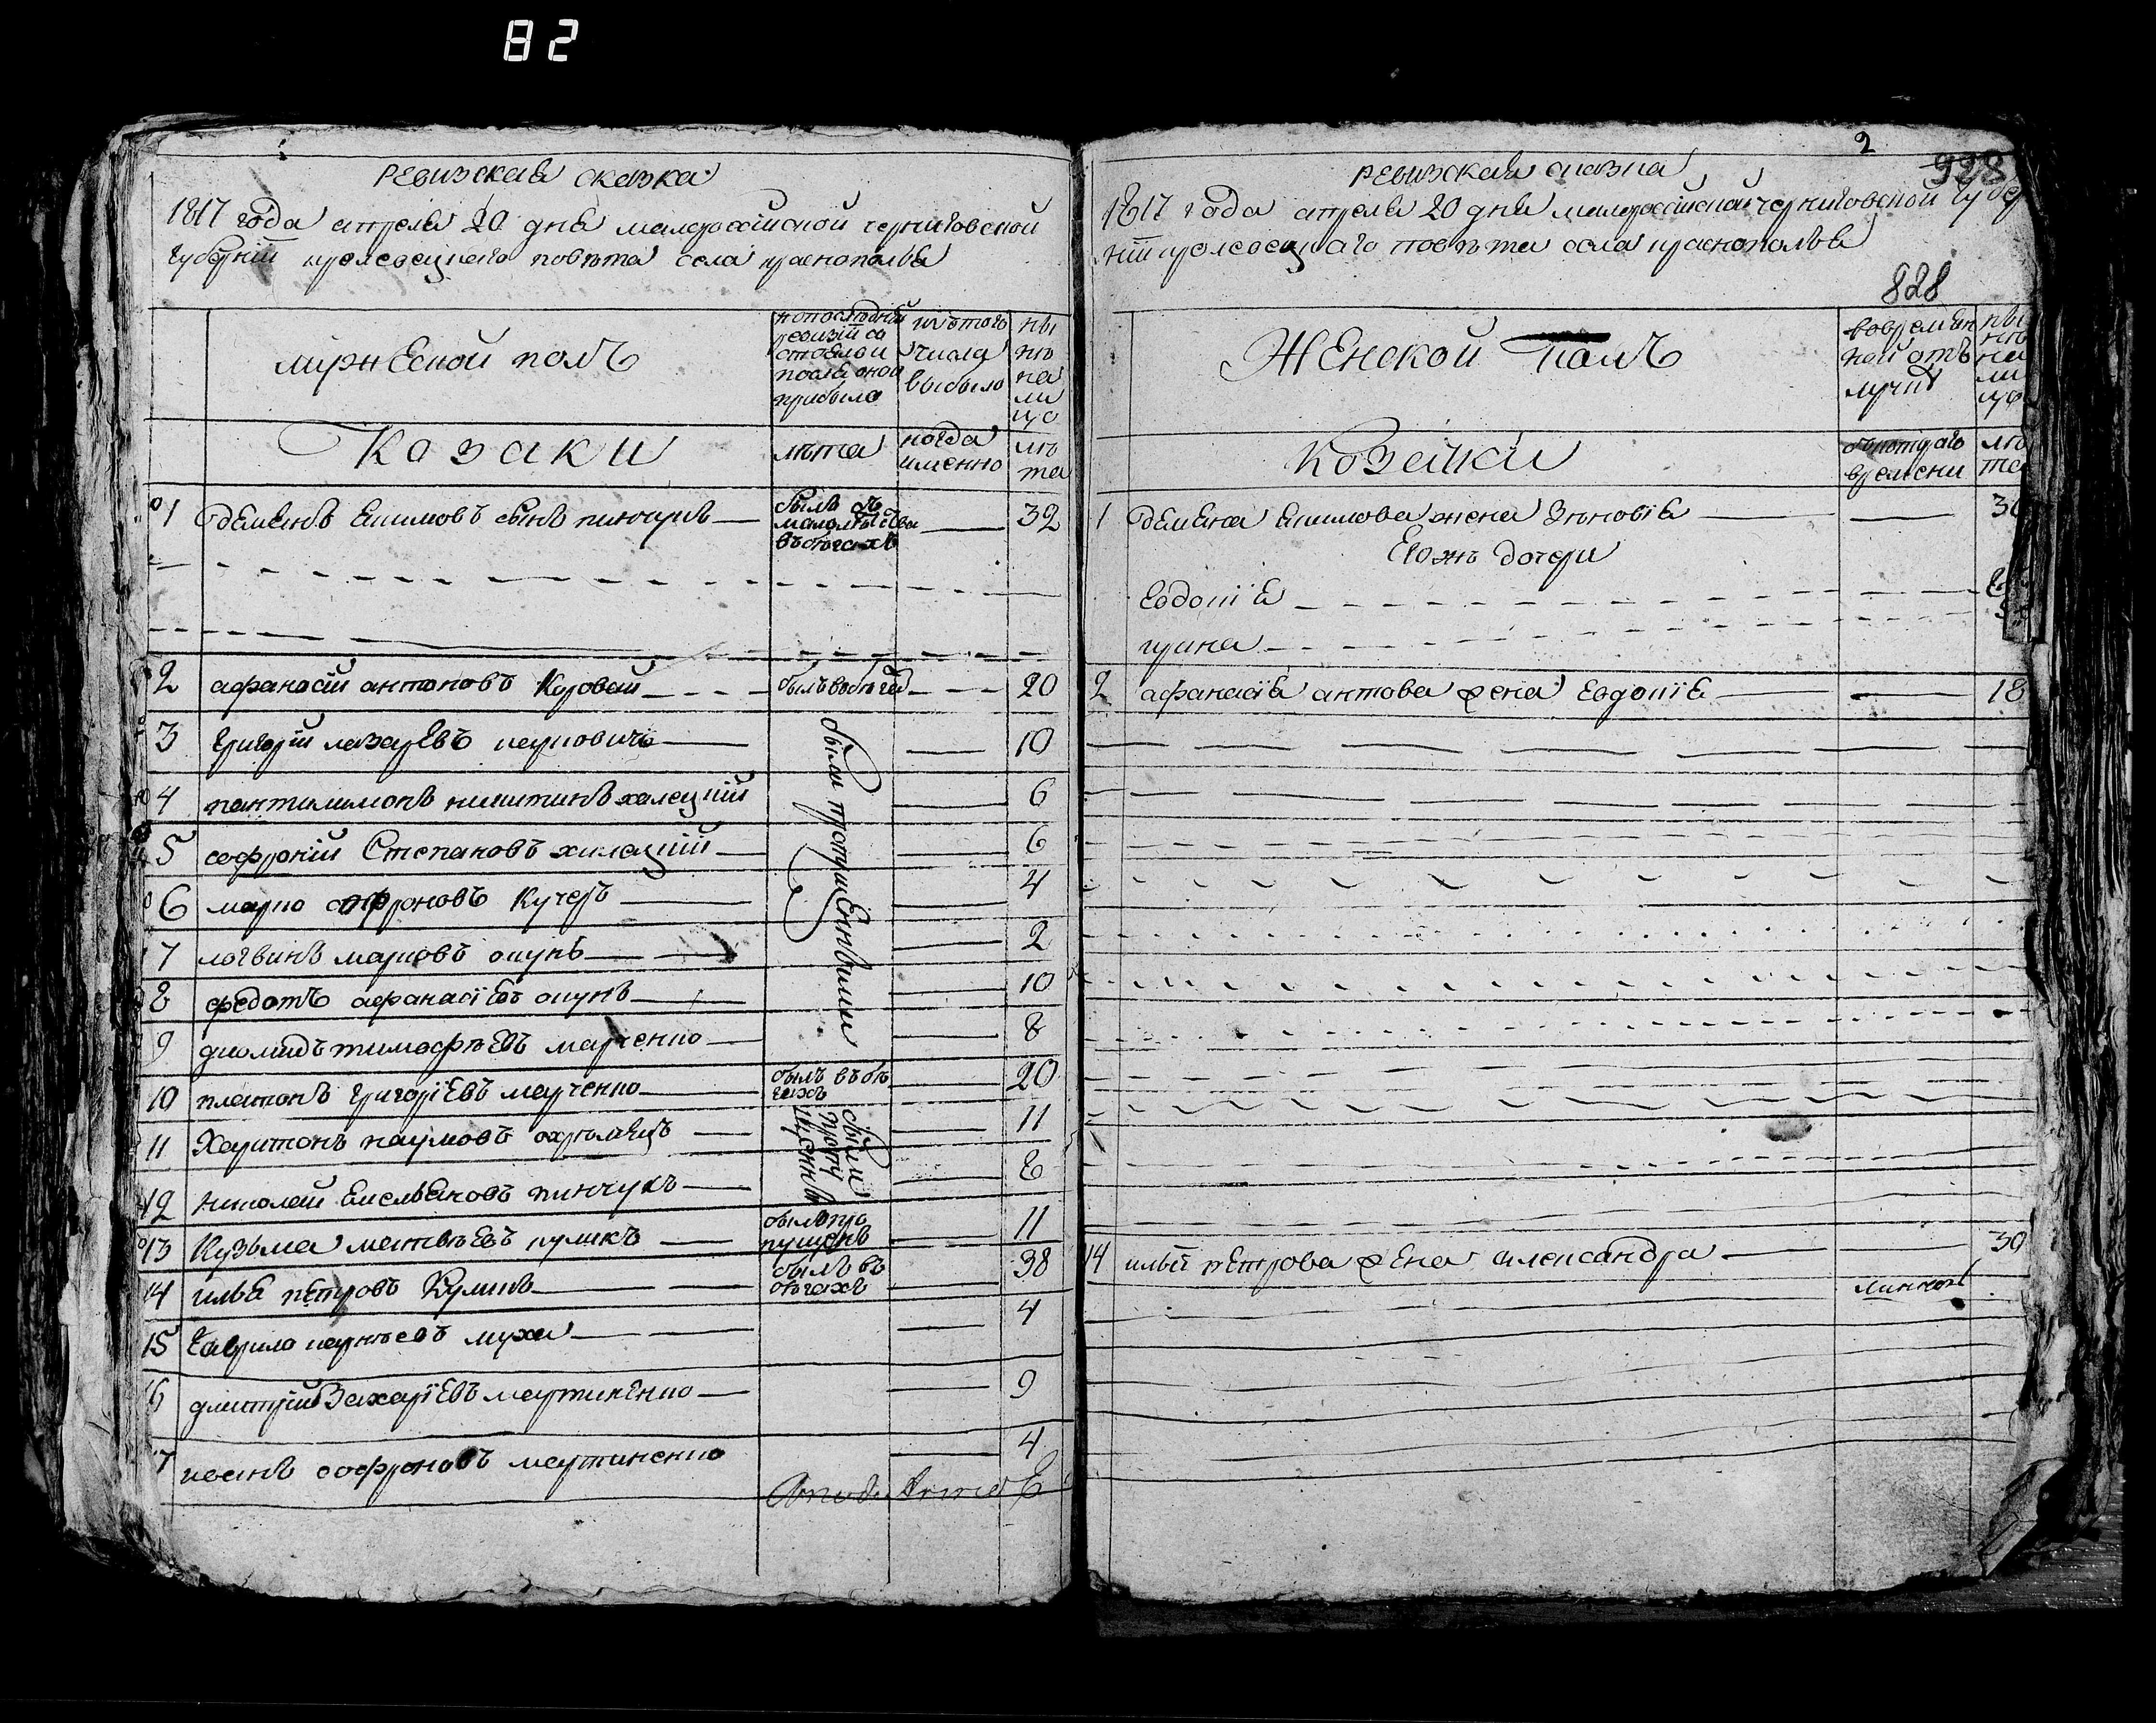 82
РЕвизская сказка
1817 года апреля 20 дня малоросійской черниговской
губернїй кролевецкаго повѣта села краснополья
мужеской полъ
попоследней ревизїй состояло и после оной прибыло
изътого числа выбыло
ныне на лицо
Козаки
лѣта
когда именно
лѣта
1 деменъ Екимовъ сынъ пинчукъ
былъ съ малолѣтства въ бѣгахъ
32
2 афанасій антоновъ Коровай
былъ въ бѣгах
20
3 григорїй лазарЕвъ карповичъ
10
были пропущЕнными
4 пантилимонъ никитинъ халецкїй
6
5 софронїй Степановъ халецкїй
6
6 марко софроновъ Кучеръ
4
7 логвинъ марковъ окунь
2
8 федотъ афанасїЕвъ окунь
10
9 диомидъ тимофѣЕвъ марченко
8
10 платонъ григорїЕвъ марченко
былъ въ бѣгахъ
20
11 Харитонъ наумовъ охрѣмЕцъ
11
были пропущенны
12 николай Емельяновъ пинчукъ
8
13 Кузьма матвѣЕвъ куликъ
былъ пропущенъ
11
14 илья пЕтровъ Куликъ
былъ въ бѣгахъ
38
15 гаврило карнѣевъ муха
4
16 дмитрїй ЗахарїЕвъ мартинЕнко
9
17 иванъ софроновъ мартиненко
4
2
928
РЕвизская сказка
1817 года апреля 20 дня малоросійской черниговской губер
нїй кролевецкаго повѣта села краснополья
828
ЖЕнской полъ
вовременной отълучкѣ
ны нѣ на ли цо
Козачки
съкотораго времени
лѣ та
1 демЕна Екимова жена Зѣновїя
Егожъ дочери
Евдокїя
ирина
2 афанасїя антова жена Евдокїя
18
14 ильи пЕтрова жЕна александра
30